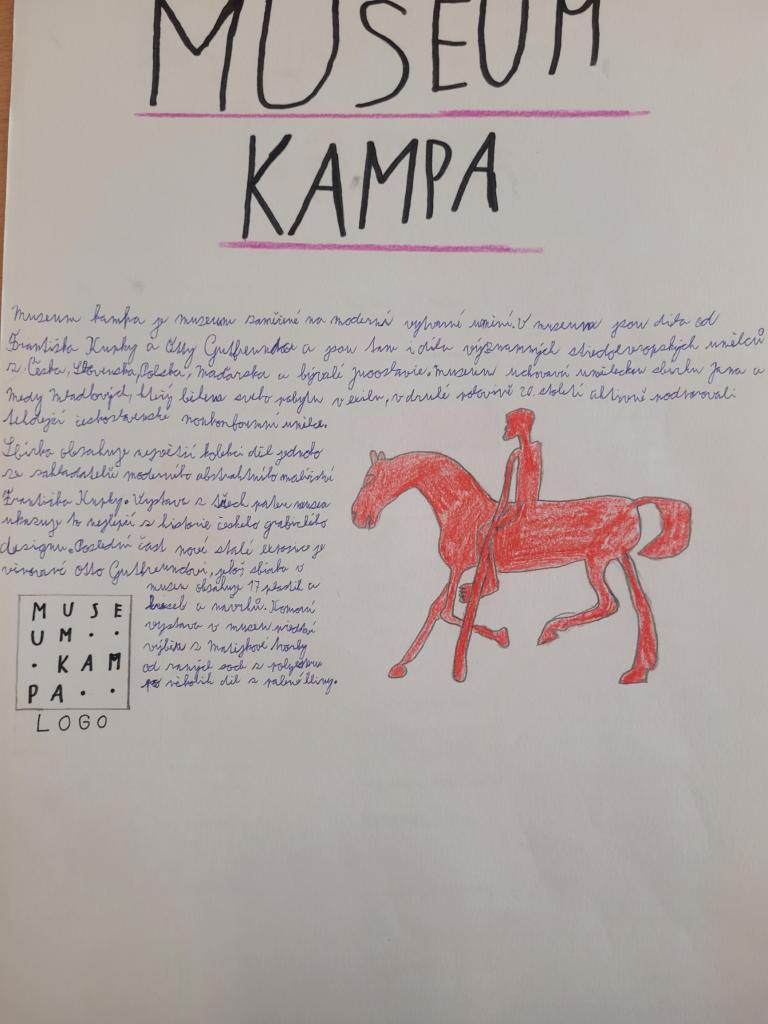 MUSEUM
KAMPA
Museum kampa je museum zaměřené na moderní výtvarné umíní. V museuma jsou díla od
Františka Kupky a Otty Gutfreunda a jsou tam i díla významných středoevropských umělců
z Česka, Slovenska, Polska, Maďarska a bývalé jugoslavie. Museum uchovává uměleckou sbírku Jana a
Medy Mládkových, kteří během svého pobytu v exilu, v druhé polovině 20. století aktivně podporovali
tehdejší československé nonkonformní umělce.
Sbírka obsahuje největší kolekci děl jednoho
ze zakladatelů moderního abstraktního malířství
Františka Kupky. Výstava z třech pater musea
ukazuje to nejlepší z historie českého grafického
designu. Poslední část nové stálé expozice je
věnované Otto Gutfreundovi, jehož sbírka v
museu obsahuje 17 plastik a
kreseb a návrhů. Komorní
výstava v museu představí
výběr z Matějkové tvorby
od raných soch z polyesteru
po několik děl z pálené hlíny.
MUSE
UM · ·
· KAM
PA · ·
LOGO